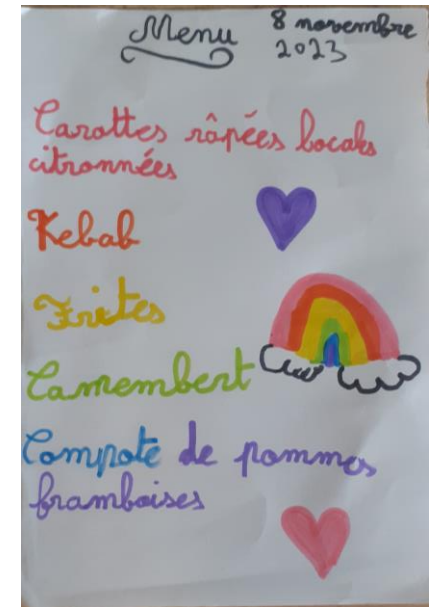 Menu
8 novembre
2023
Carottes râpées locales
citronnées
Kebab
Frites
Camembert
Compote de pommes
framboises